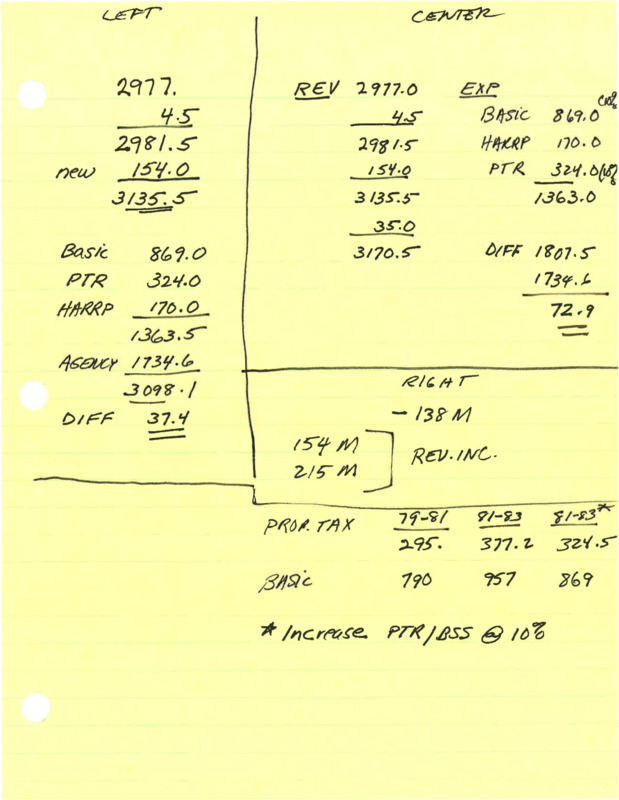 LEFT
2977.
4.5
2981.5
new 154.0
3135.5
Basic 869.0
PTR 324.0
HARRP 170.0
1363.5
AGENCY 1734.6
3098.1
DIFF 37.4
CENTER
REV 2977.0
4.5
2981.5
154.0
3135.5
35.0
3170.5
EXP
BASIC 869.0
HARRP 170.0
PTR 324.0
1363.0
DIFF 1807.5
1734.6
72.9
RIGHT
- 138 M
154 M
215 M
REV. INC.
PROP. TAX 79-81 81-83 81-83*
295. 377.2 324.5
BASIC 790 957 869
* Increase PTR/BSS @ 10%